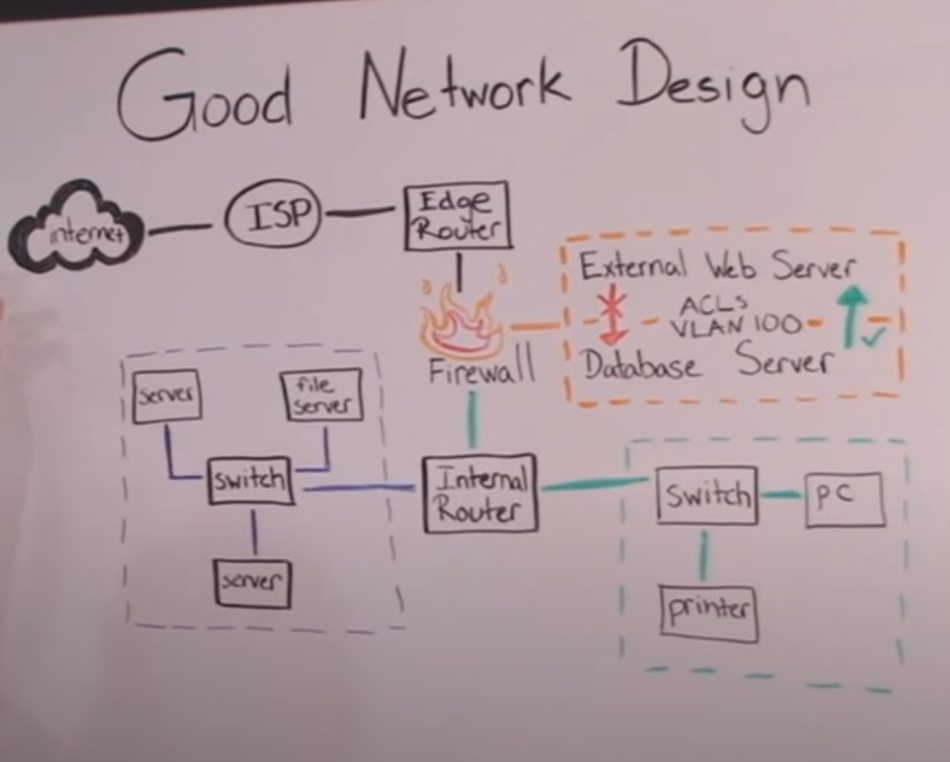 Good Network Design
internet
ISP
Edge
Router
External Web Server
ACLs
VLAN 100
Database Server
Firewall
server
file
server
switch
server
Internal
Router
switch
PC
printer